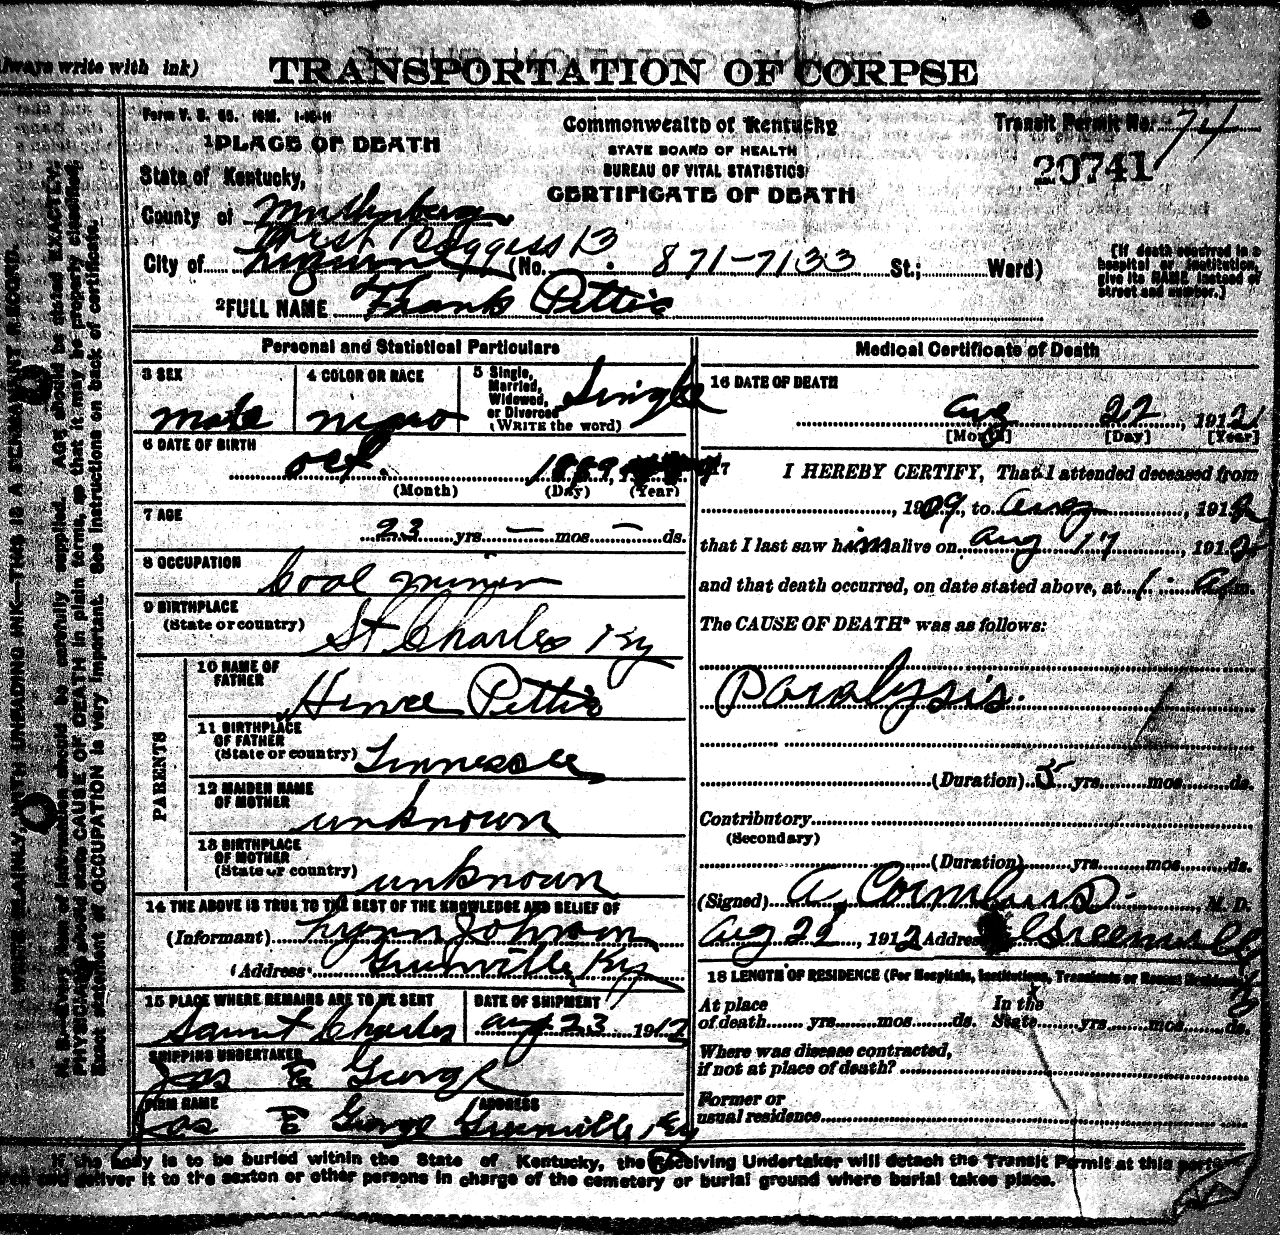 (Always write with ink)
TRANSPORTATION OF CORPSE
Form V. S. 65. 10M. 1-16-11
Commonwealth of Kentucky
STATE BOARD OF HEALTH
BUREAU OF VITAL STATISTICS
CERTIFICATE OF DEATH
Transit Permit No. 74
20741
1 PLACE OF DEATH
State of Kentucky,
County of Muhlenberg
West Boggess 13
City of (No. 871-7133 St.; Ward)
[If death occurred in a hospital or institution, give its NAME instead of street and number.]
2 FULL NAME Frank Pettis
Personal and Statistical Particulars
3 SEX
male
4 COLOR OR RACE
negro
5 Single, Married, Widowed, or Divorced (WRITE the word)
Single
6 DATE OF BIRTH
Oct. 1889, 1
(Month) (Day) (Year)
7 AGE
23 yrs — mos — ds.
8 OCCUPATION
Coal miner
9 BIRTHPLACE
(State or country)
St Charles Ky
PARENTS
10 NAME OF FATHER
Pettis
11 BIRTHPLACE OF FATHER
(State or country)
Tennessee
12 MAIDEN NAME OF MOTHER
unknown
13 BIRTHPLACE OF MOTHER
(State or country)
unknown
14 THE ABOVE IS TRUE TO THE BEST OF THE KNOWLEDGE AND BELIEF OF
(Informant) Lynn Johnson
(Address) Greenville Ky
15 PLACE WHERE REMAINS ARE TO BE SENT
Saint Charles
DATE OF SHIPMENT
Aug 23 1912
SHIPPING UNDERTAKER
Jas E George
FIRM NAME ADDRESS
Jas E George Greenville, Ky
Medical Certificate of Death
16 DATE OF DEATH
Aug 22, 1912
[Month] [Day] [Year]
17 I HEREBY CERTIFY, That I attended deceased from
, 1909, to Aug , 1912
that I last saw him alive on Aug 17, 1912
and that death occurred, on date stated above, at 1 a m.
The CAUSE OF DEATH* was as follows:
Paralysis.
(Duration) 5 yrs. mos. ds.
Contributory
(Secondary)
(Duration) yrs. mos. ds.
(Signed) M. D.
Aug 22, 1912 Address Greenville
18 LENGTH OF RESIDENCE (For Hospitals, Institutions, Transients or Recent Residents)
At place of death yrs. mos. ds. In the State yrs. mos. ds.
Where was disease contracted,
if not at place of death?
Former or
usual residence
If the body is to be buried within the State of Kentucky, the Receiving Undertaker will detach the Transit Permit at this
and deliver it to the sexton or other persons in charge of the cemetery or burial ground where burial takes place.
WRITE PLAINLY, WITH UNFADING INK—THIS IS A PERMANENT RECORD.
N. B.—Every item of information should be carefully supplied. AGE should be stated EXACTLY.
PHYSICIANS should state CAUSE OF DEATH in plain terms, so that it may be properly classified.
Exact statement of OCCUPATION is very important. See instructions on back of certificate.